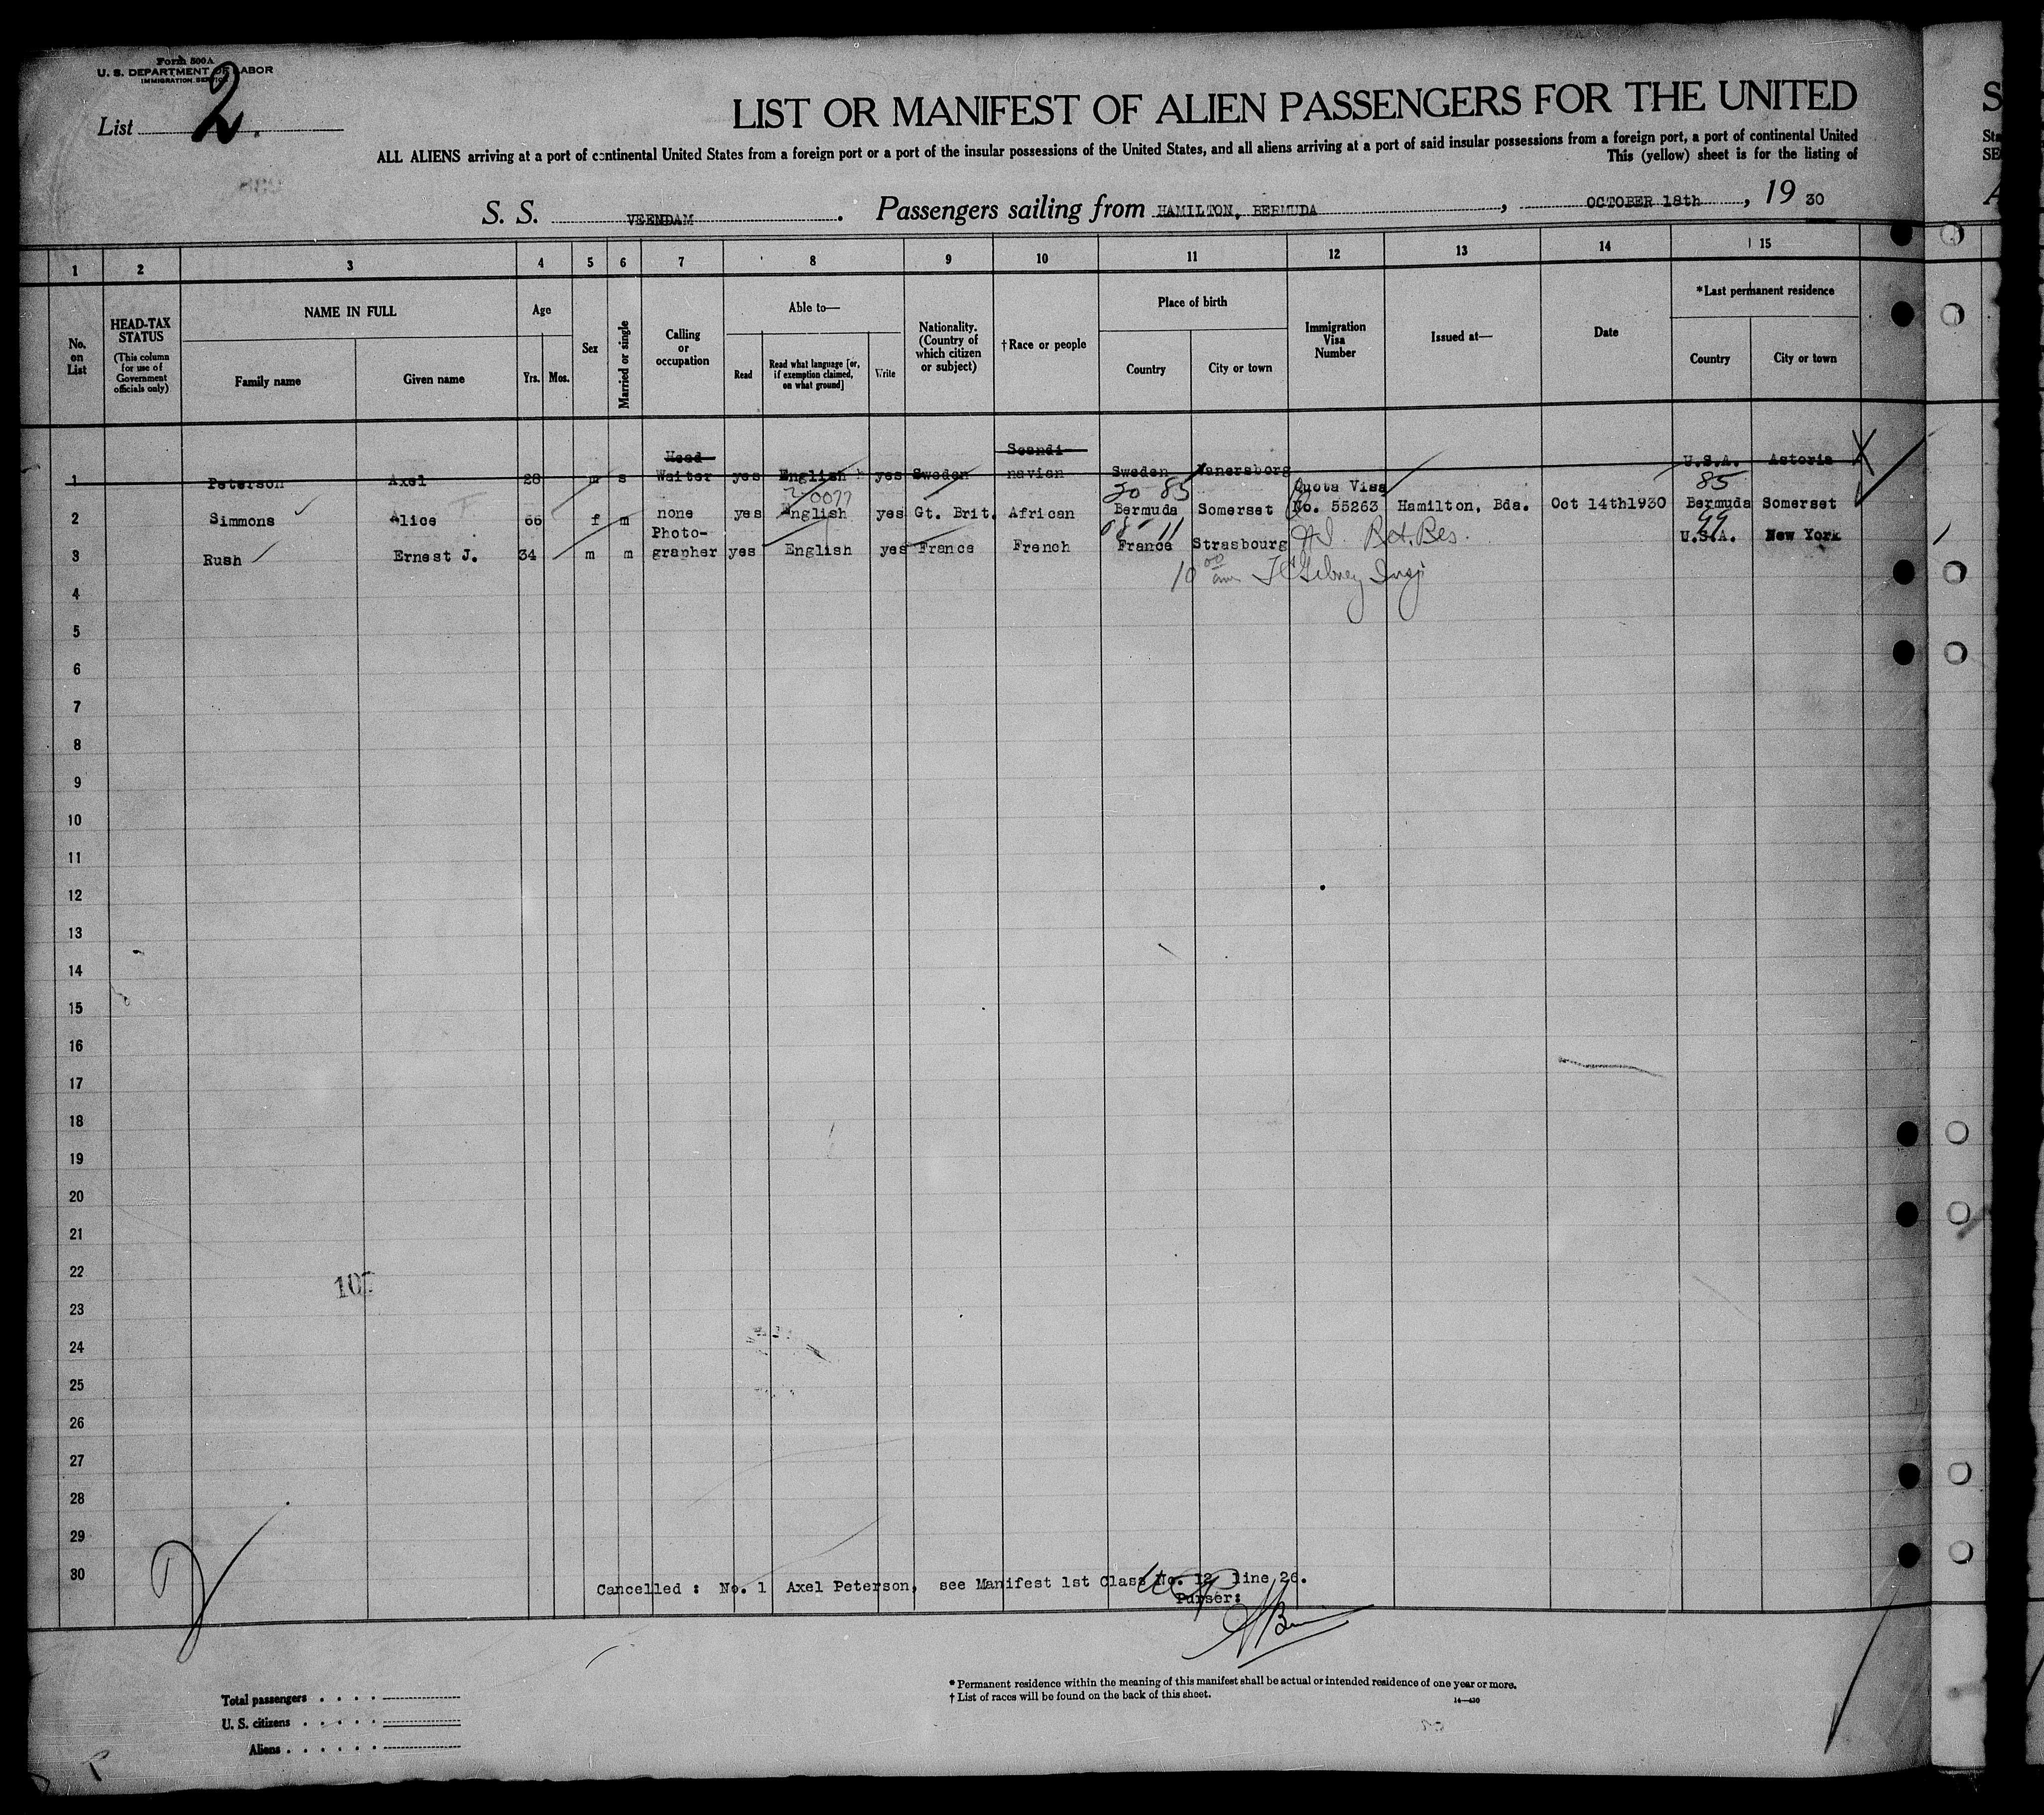 Form 500A
U. S. DEPARTMENT OF LABOR
IMMIGRATION SERVICE
List 2.
LIST OR MANIFEST OF ALIEN PASSENGERS FOR THE UNITED
ALL ALIENS arriving at a port of continental United States from a foreign port or a port of the insular possessions of the United States, and all aliens arriving at a port of said insular possessions from a foreign port, a port of continental United
This (yellow) sheet is for the listing of
S. S. VEENDAM. Passengers sailing from HAMILTON, BERMUDA, OCTOBER 18th, 19 30
1 2 3 4 5 6 7 8 9 10 11 12 13 14 15
No. on List
HEAD-TAX STATUS (This column for use of Government officials only)
NAME IN FULL
Family name Given name
Age
Yrs. Mos.
Sex
Married or single
Calling or occupation
Able to—
Read
Read what language [or, if exemption claimed, on what ground]
Write
Nationality. (Country of which citizen or subject)
†Race or people
Place of birth
Country City or town
Immigration Visa Number
Issued at—
Date
*Last permanent residence
Country City or town
Head Scandi-
1 Peterson Axel 28 m s Waiter yes English yes Sweden navian Sweden Wanersborg U.S.A. Astoria
20 85 Quota Visa 85
2 Simmons Alice 66 f m none yes English yes Gt. Brit. African Bermuda Somerset No. 55263 Hamilton, Bda. Oct 14th1930 Bermuda Somerset
Photo-
3 Rush Ernest J. 34 m m grapher yes English yes France French France Strasbourg U.S.A. New York
4
5
6
7
8
9
10
11
12
13
14
15
16
17
18
19
20
21
22
23
24
25
26
27
28
29
30
Cancelled : No. 1 Axel Peterson, see Manifest 1st Class No. 12 line 26.
Purser:
Total passengers
U. S. citizens
Aliens
* Permanent residence within the meaning of this manifest shall be actual or intended residence of one year or more.
† List of races will be found on the back of this sheet.
14—430